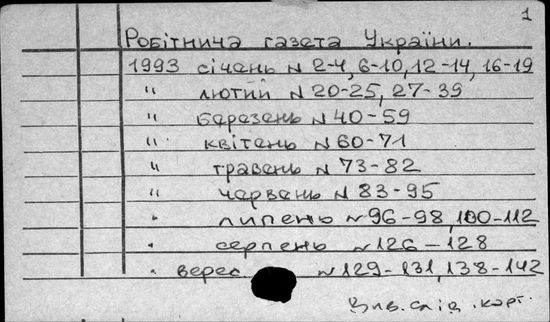 1
Робітнича газета України.
1993 січень N 2-4, 6-10, 12-14, 16-19
" лютий N 20-25, 27-39
" березень N 40-59
" квітень N 60-71
" травень N 73-82
" червень N 83-95
" липень N 96-98, 100-112
" серпень N 126-128
" верес N 129-131, 138-142
карт.